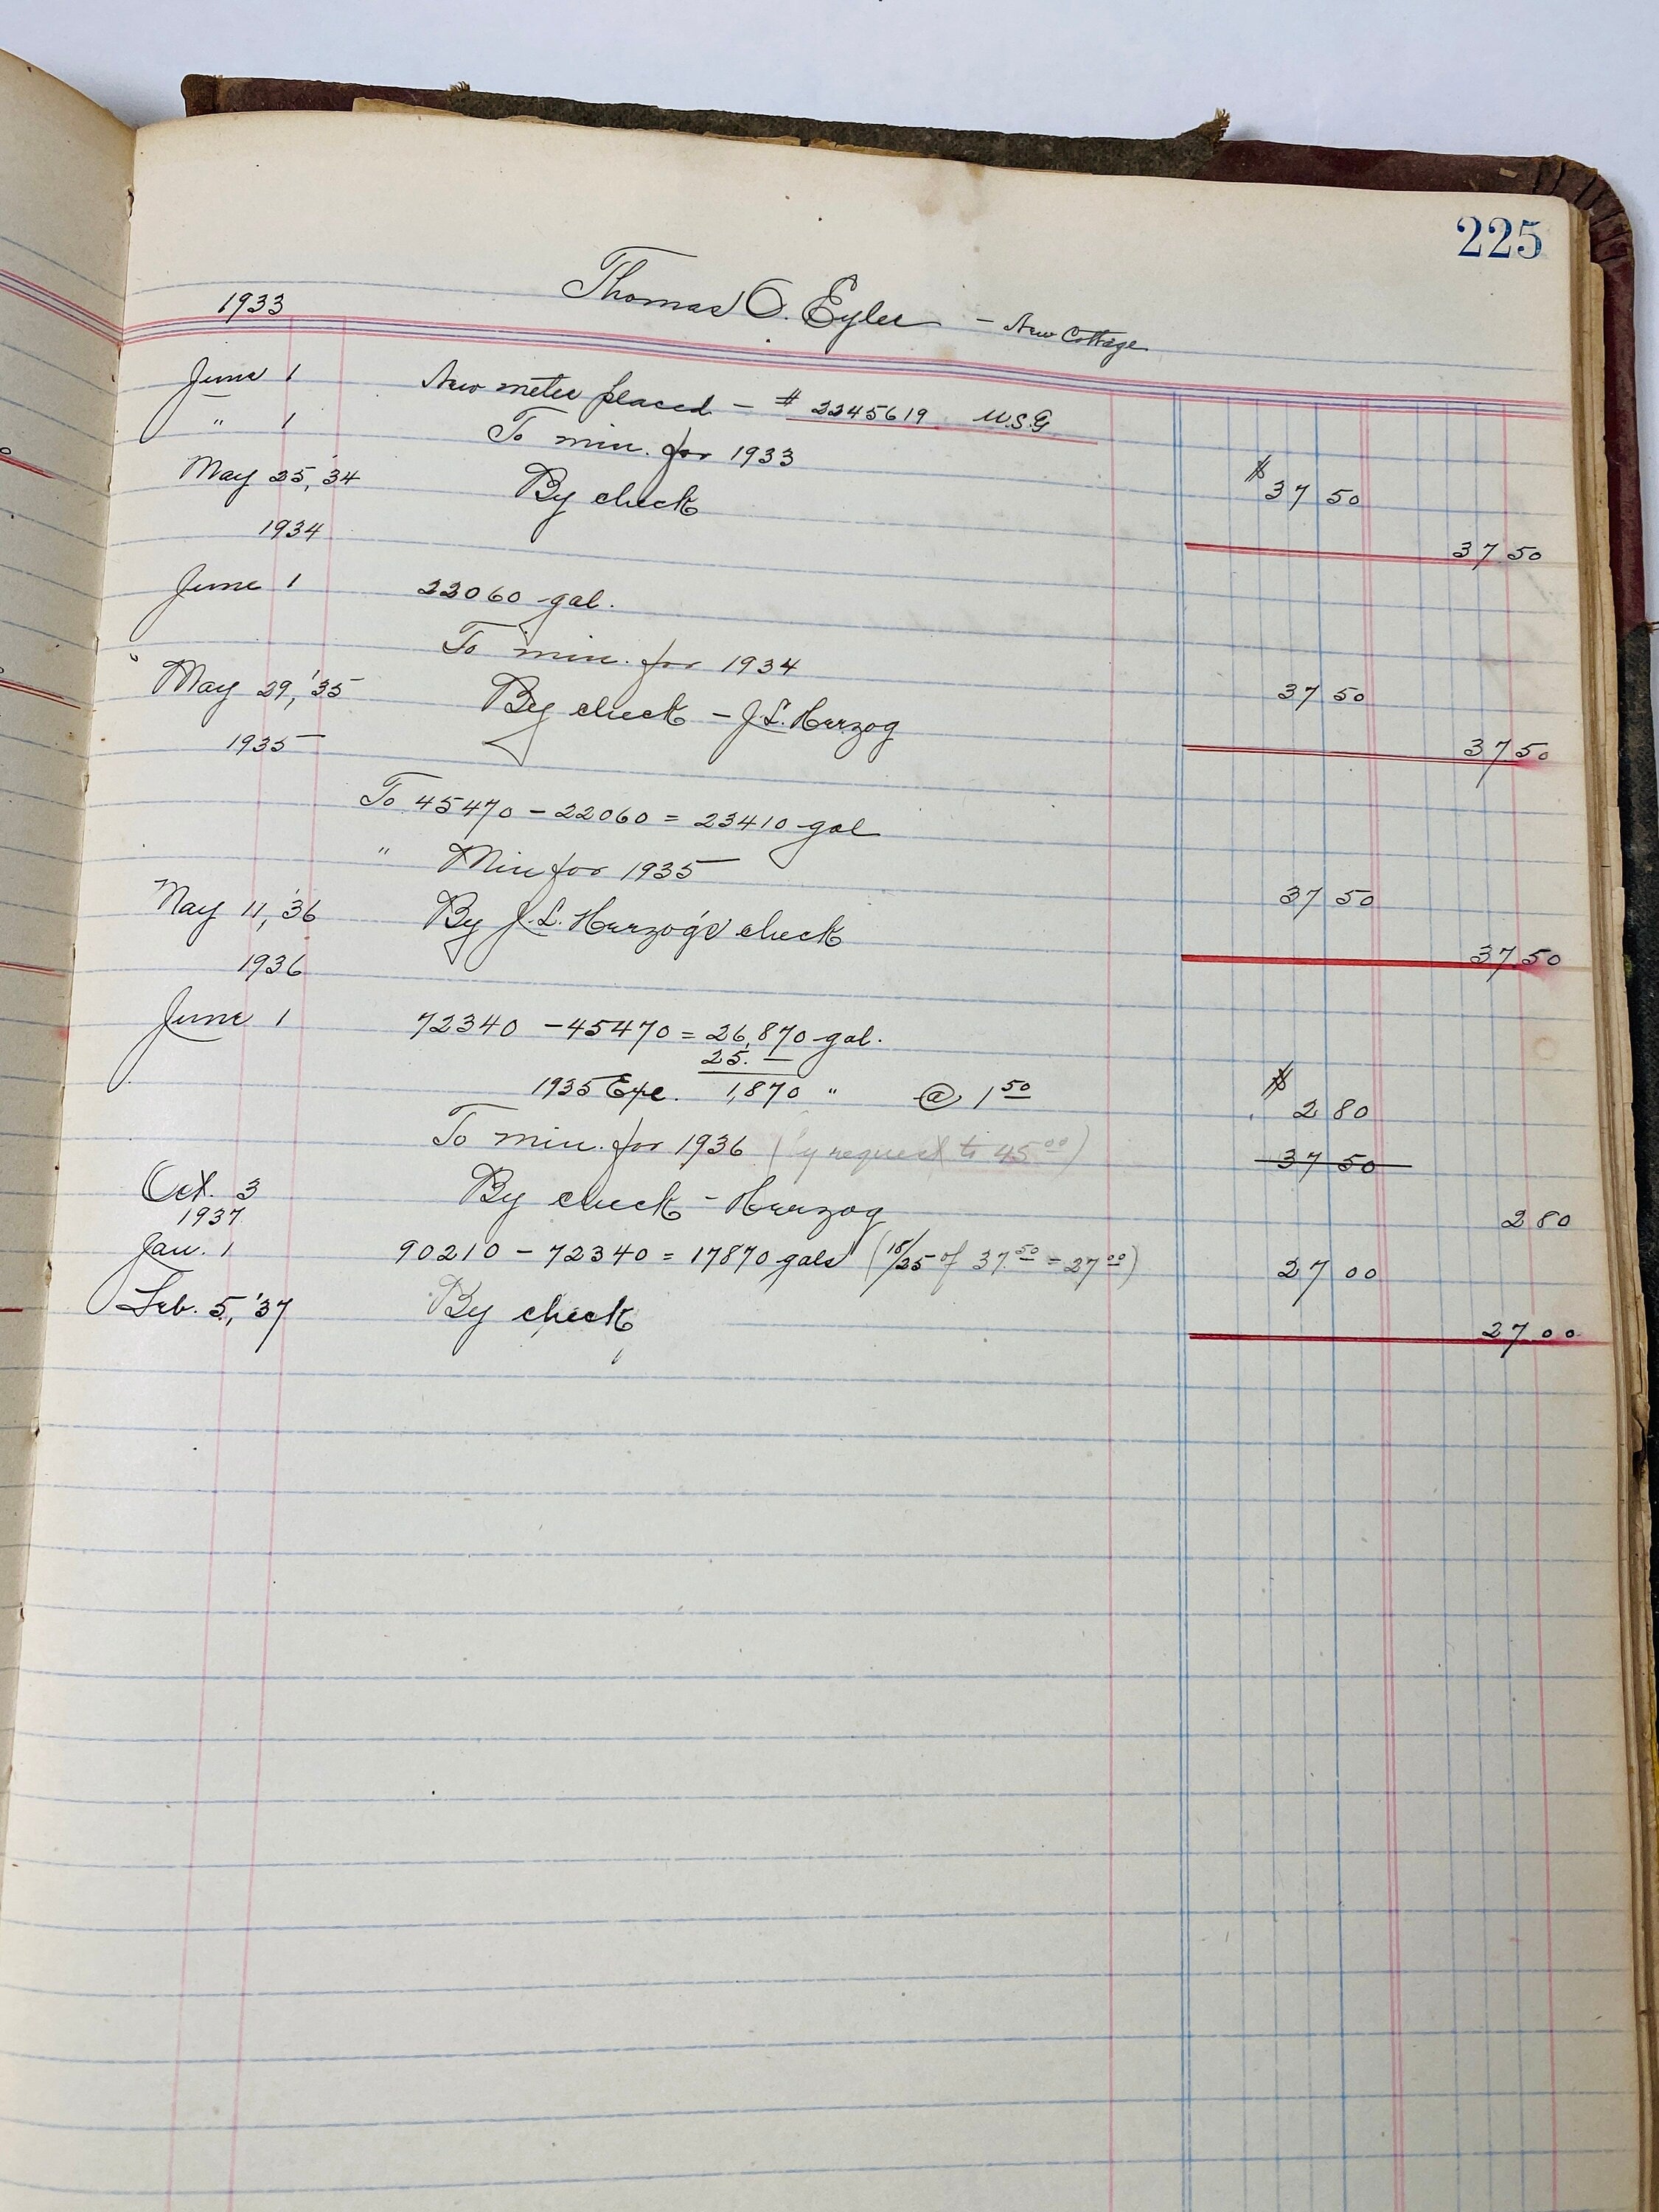 225
1933 Thomas O. Eyler - New Cottage
June 1 New meter placed - # 2245619 W.S.G
" 1 To min. for 1933 $ 37 50
May 25, '34 By check 37 50
1934
June 1 22060 gal.
To min. for 1934 37 50
May 29, '35 By check - J.L. Herzog 37 50
1935
To 45470 - 22060 = 23410 gal
" Min for 1935 37 50
May 11, '36 By J.L. Herzog's check 37 50
1936
June 1 72340 - 45470 = 26,870 gal.
25. —
1935 Exc. 1,870 " @ 1 50 $ 2 80
To min. for 1936 (by request to 45 00) 37 50
Oct. 3 By check - Herzog 2 80
1937
Jan. 1 90210 - 72340 = 17870 gals (18/25 of 37 50 = 27 00) 27 00
Feb. 5, '37 By check 27 00